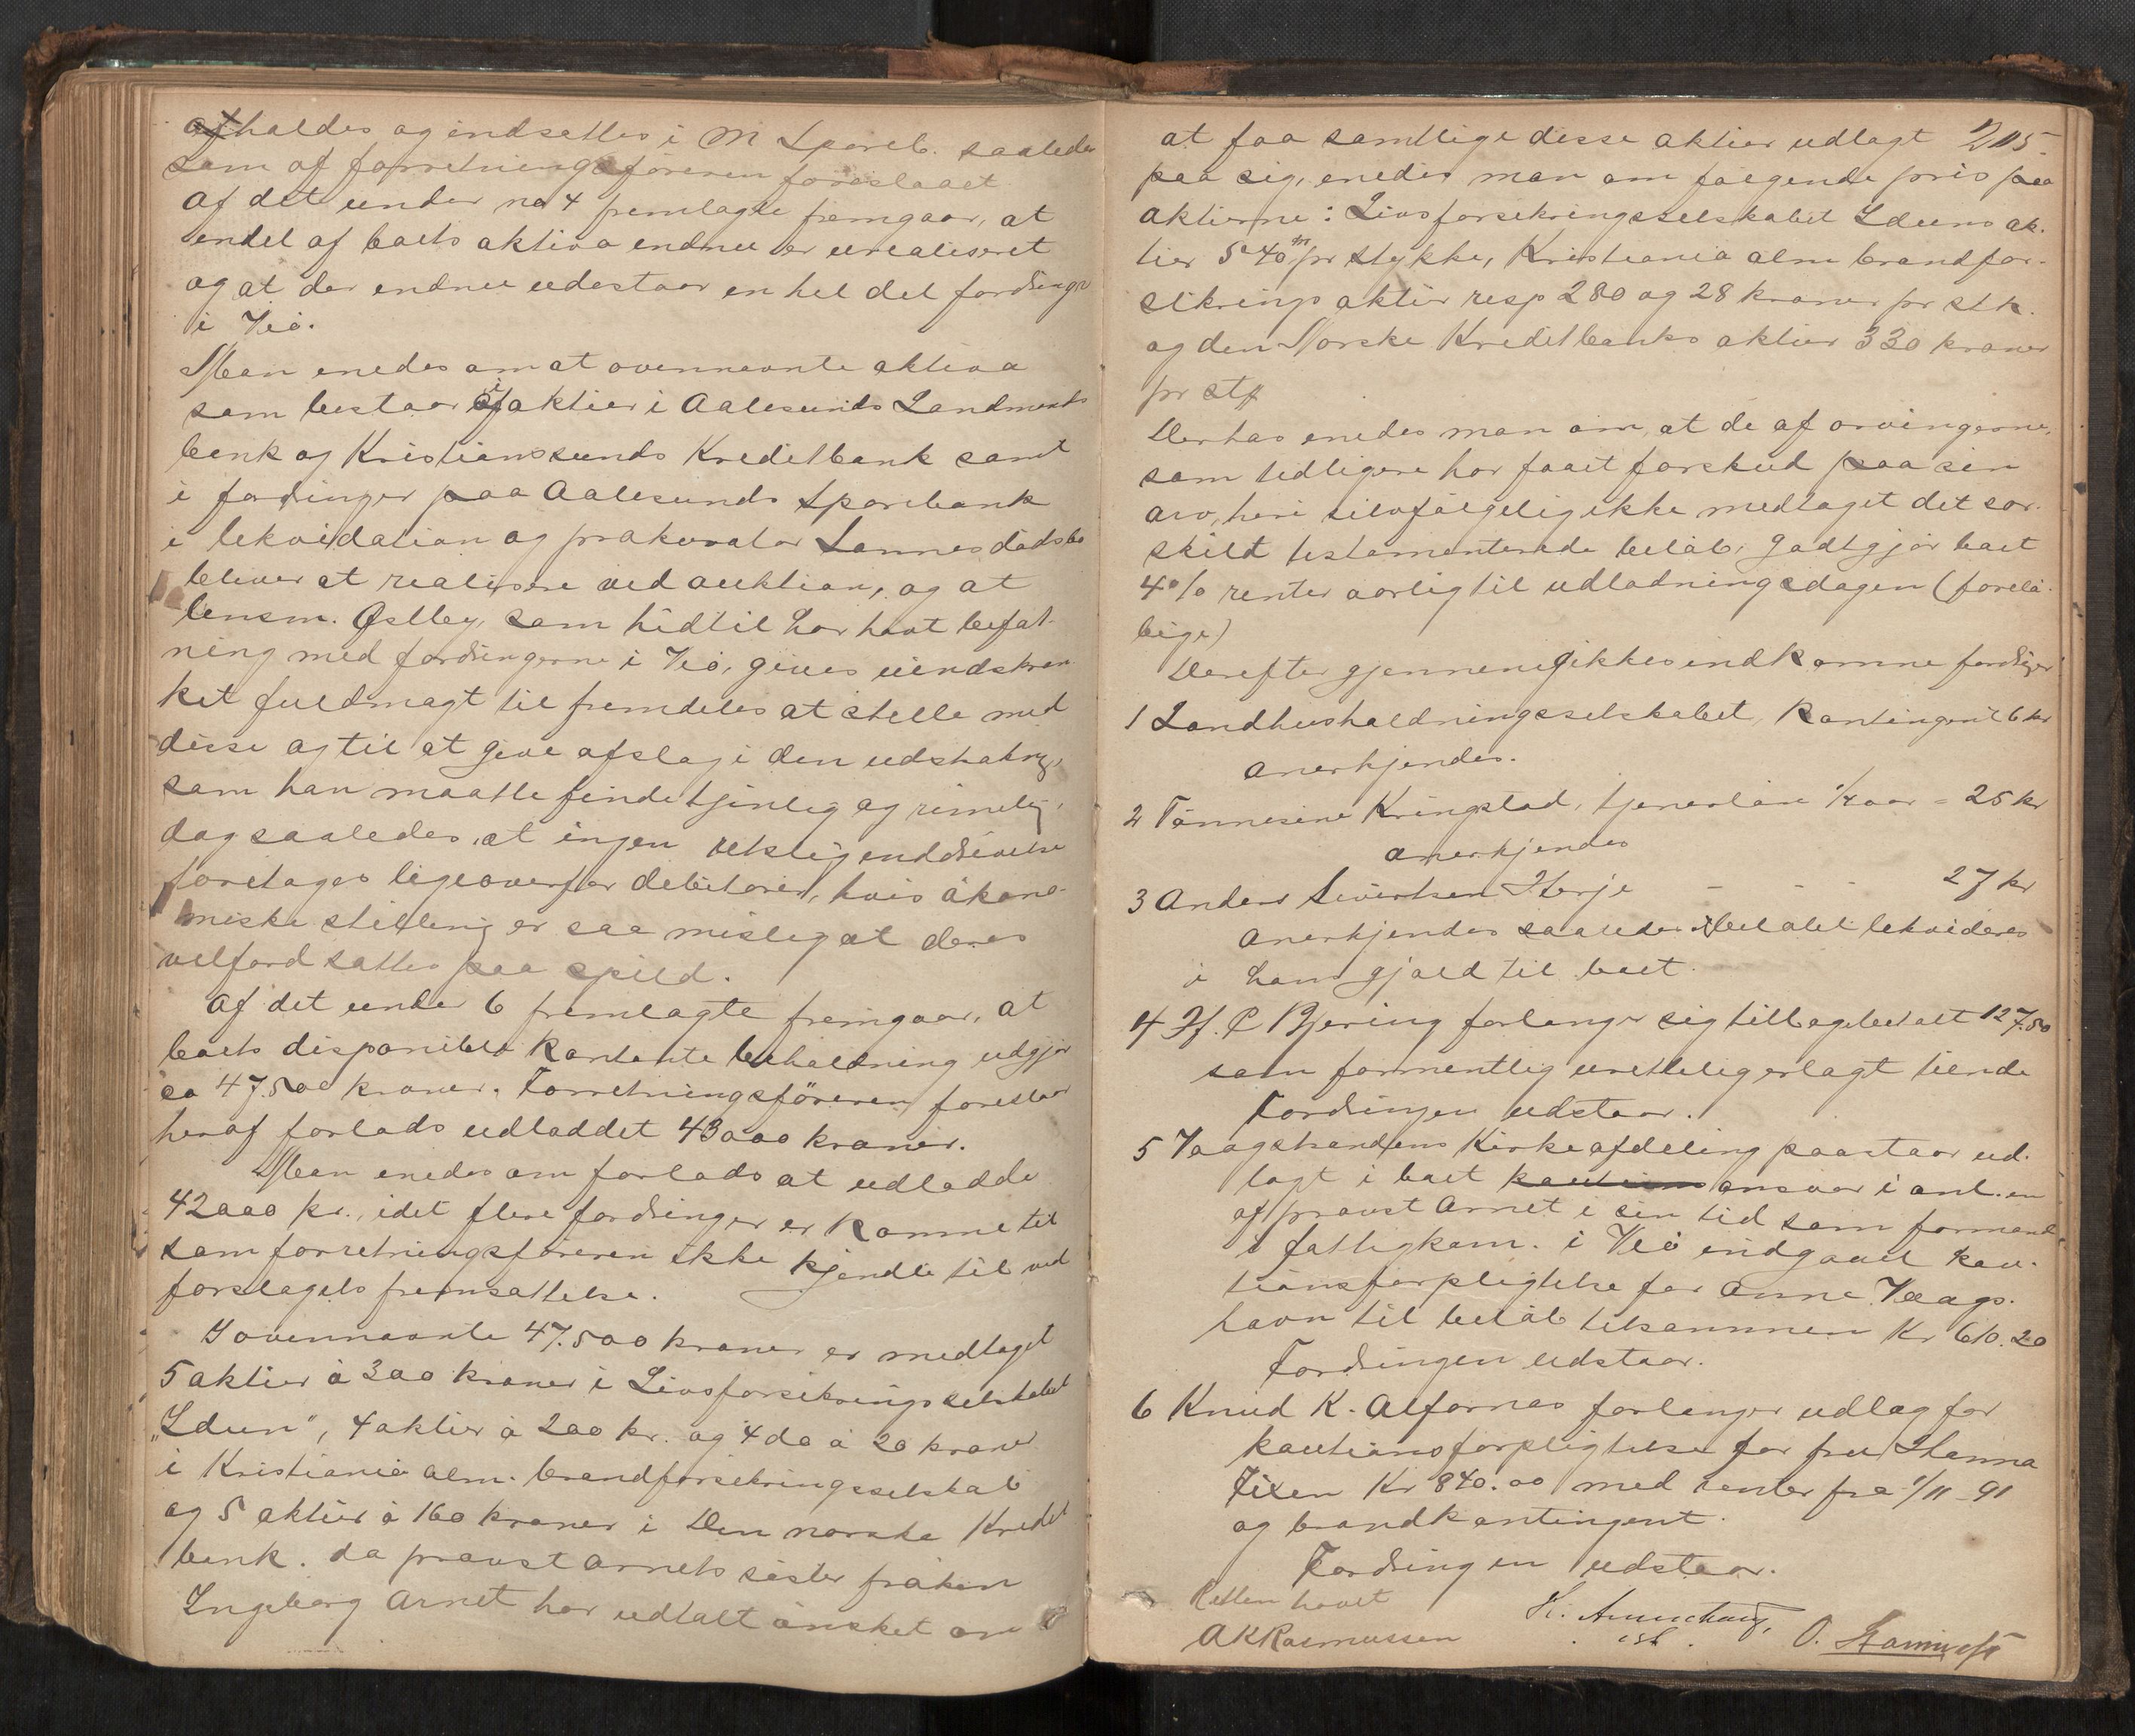 afholdes og indsættes i M Spareb. saaledes
som af forretningsføreren foreslaaet
Af det under no 4 fremlagte fremgaar, at
endel af boets aktiva endnu er urealiseret
og at der endnu udestaar en hel del fordringr
i Veø.
Man enedes om at ovennævnte aktiva
som bestaar i aktier i Aalesunds Landmands
bank og Kristianssunds Kreditbank samt
i fordringer paa Aalesunds Sparebank
i likvidation og prokurator Lannes dødsbo
bliver at realisere ved auktion, og at
lensm. Østby, som hidtil har havt befat-
ning med fordringerne i Veø, gives uindskræn
ket fuldmagt til fremdeles at stelle med
disse og til at give afslag i den udstrækng,
som han maatte finde tjenlig og rimelig,
dog saaledes, at ingen retslig inddrivelse
foretages ligeoverfor debitorer, hvis økono-
miske stilling er saa mislig at deres
velfærd sattes paa spild.
Af det under 6 fremlagte fremgaar, at
boets disponible kontante beholdning udgjør
ca 47.500 kroner. Forretningsføreren foreslaar
heraf forlods udloddet 43000 kroner.
Man enedes om forlods at udlodde
42000 kr., idet flere fordringer er komne til
som forretningsføreren ikke kjendte til ved
forslagets fremsættelse.
I ovennævnte 47.500 kroner er medtaget
5 aktier à 300 kroner i Livsforsikringsselskabet
„Idun", 4 aktier à 200 kr. og 4 do à 20 kroner
i Kristiania alm. brandforsikringsselskab
og 5 aktier à 160 kroner i Den norske Kredit
bank. Da provst Arnets søster frøken
Ingeborg Arnet har udtalt ønsket om
at faa samtlige disse aktier udlagt 205.
paa sig, enedes man om følgende pris paa
aktierne: Livsforsekringsselskabet Iduns ak-
tier 540 pr stykke, Kristiania alm brandfor-
sikrings aktier resp 280 og 28 kroner pr stk.
og den Norske Kreditbanks aktier 330 kroner
pr stk
Derhos enedes man om, at de af arvingerne,
som tidligere har faaet forskud paa sin
arv, heri selvfølgelig ikke medtaget det sær-
skilt testamenterede beløb, godtgjør boet
4% renter aarlig til udlodningsdagen (forelø-
bige)
Derefter gjennemgikkes indkomne fordriger
1 Landhusholdningsselskabet, kontingent 6 kr
anerkjendes.
2 Tønnesine Kringstad, tjenerløn 1/2 aar = 25 kr
anerkjendes
3 Anders Sivertsen Herje - - - 27 kr
Anerkjendes saaledes at beløbet likvideres
i hans gjæld til boet.
4 H. P Bjering forlanger sig tilbagebetalt 127.50
som formentlig urettelig erlagt tiende
Fordringen udstaar.
5 Vaagstrandens Kirkeafdeling paastaar ud-
lagt i boet kautions ansvar i anl. en
af provst Arnet i sin tid som formand
i fattigkom. i Veø indgaaet kau-
tionsforpligtelse for Anne Vaags-
havn til beløb tilsammen Kr 610.20
Fordringen udstaar.
6 Knud K. Alfarnes forlanger udlæg for
kautionsforpligtelse for fru Hanna
Tixen Kr 840.00 med renter fra 1/11 91
og brandkontingent.
Fordringen udstaar.
Retten hævet
AKRasmussen